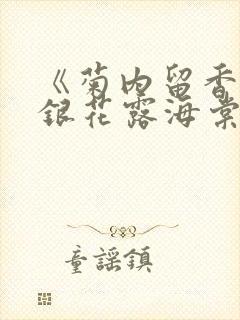 《菊内留香
銀花露海棠
童謠鎮